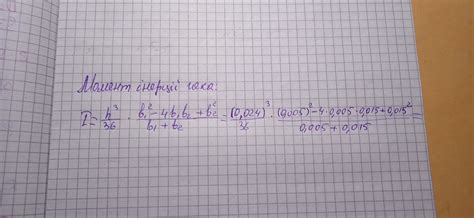 Момент інерції гака:
I = h³/36 · (b₁² - 4b₁b₂ + b₂²)/(b₁ + b₂) = (0,024)³/36 · ((0,005)² - 4·0,005·0,015 + 0,015²)/(0,005 + 0,015) =